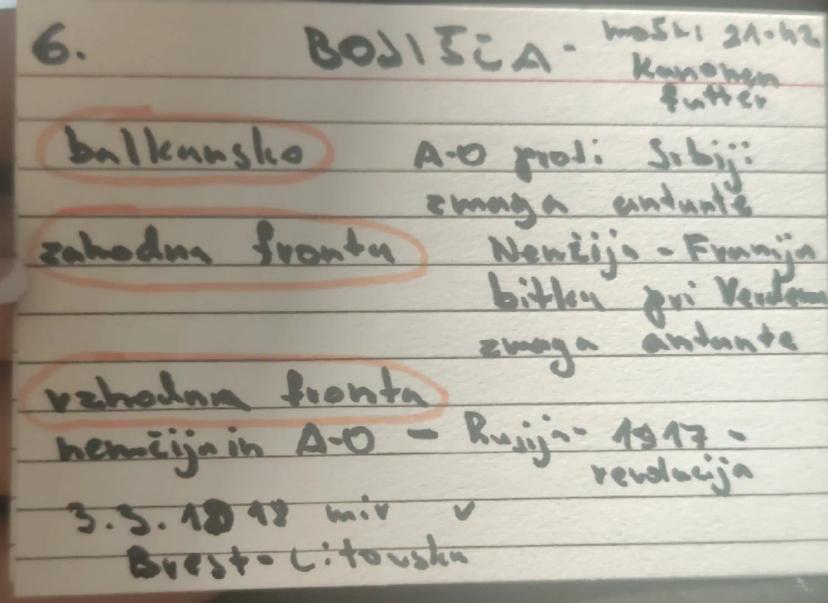 6. BOJIŠČA - moški 21-42
Kanonen
futter
balkansko A-O proti Srbiji
zmaga antante
zahodna fronta Nemčija - Francija
bitka pri Verdunu
zmaga antante
vzhodna fronta
nemčija in A-O - Rusija - 1917 -
revolucija
3.3.1918 mir v
Brest-Litovsku